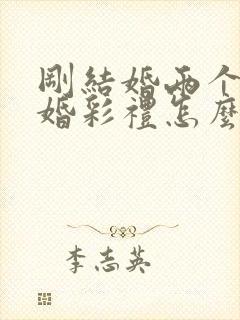 剛結婚兩个
婚彩禮怎麼
李志英